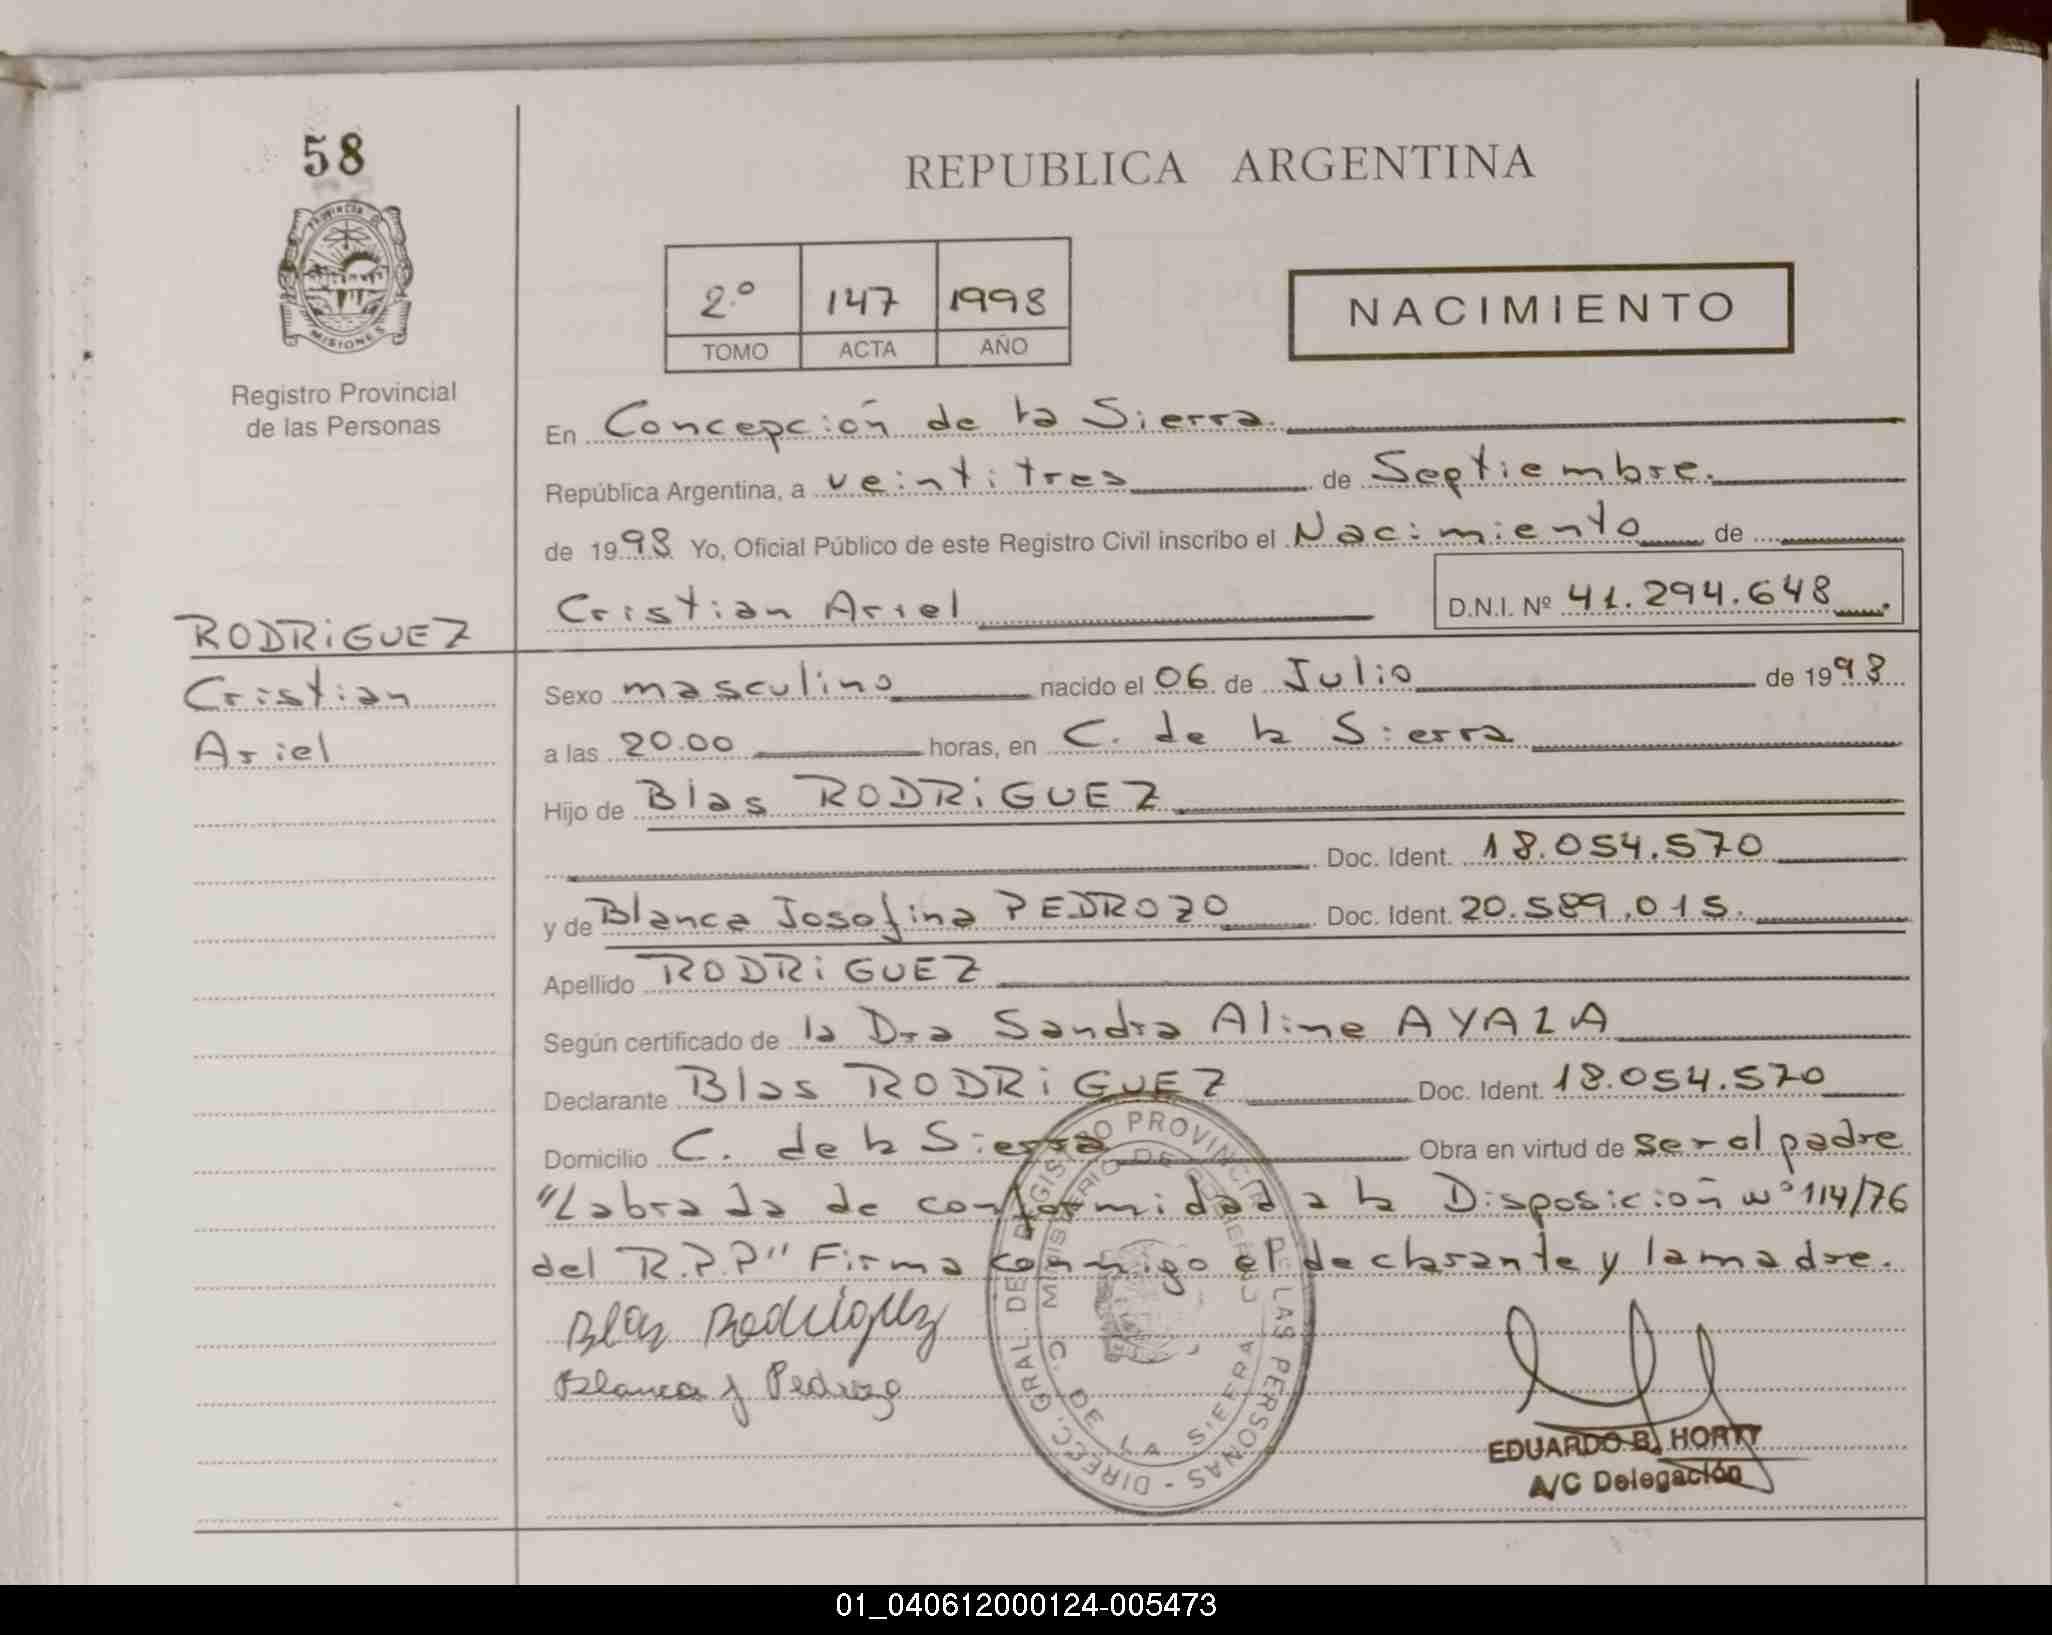 58
PROVINCIA DE
MISIONES
Registro Provincial
de las Personas
REPUBLICA ARGENTINA
2.º 147 1998
TOMO ACTA AÑO
NACIMIENTO
En Concepción de la Sierra.
República Argentina, a veintitres de Septiembre.
de 1998 Yo, Oficial Público de este Registro Civil inscribo el Nacimiento de
Cristian Ariel D.N.I. Nº 41.294.648
RODRiGUEZ
Cristian
Ariel
Sexo masculino nacido el 06 de Julio de 1998
a las 20.00 horas, en C. de la Sierra
Hijo de Blas RODRiGUEZ
Doc. Ident. 18.054.570
y de Blanca Josefina PEDROZO Doc. Ident. 20.589.015.
Apellido RODRiGUEZ
Según certificado de la Dra Sandra Aline AYALA
Declarante Blas RODRiGUEZ Doc. Ident. 18.054.570
Domicilio C. de la Sierra Obra en virtud de ser el padre
"Labrada de conformidad a la Disposición nº 114/76
del R.P.P" Firma conmigo el declarante y la madre.
Blas Rodriguez
Blanca J Pedrozo
DIRECC. GRAL. DE REGISTRO PROVINCIAL DE LAS PERSONAS
MINISTERIO DE GOBIERNO
C. DE LA SIERRA
EDUARDO B. HORTT
A/C Delegación
01_040612000124-005473